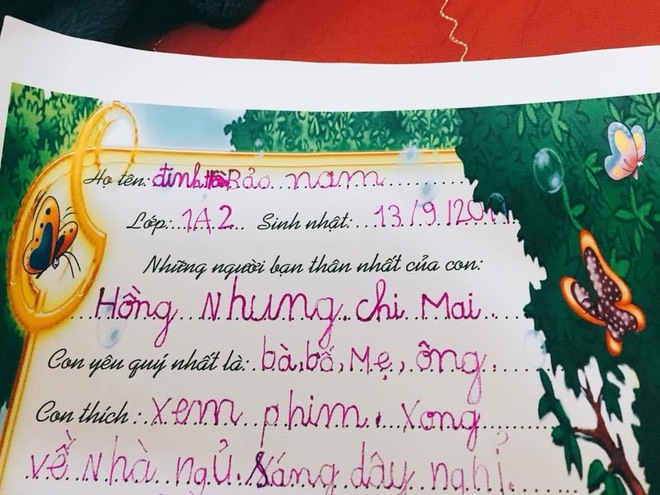 Họ tên: đinh Bảo nam
Lớp: 1A2 Sinh nhật: 13/9/20
Những người bạn thân nhất của con:
Hồng Nhung, chi Mai
Con yêu quý nhất là: bà, bố, Mẹ, ông
Con thích: xem phim, xong
về Nhà ngủ, Sáng dây nghỉ.